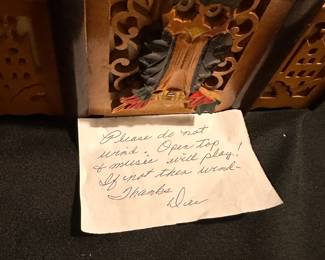 Please do not
wind. Open top
& music will play!
If not then wind-
Thanks